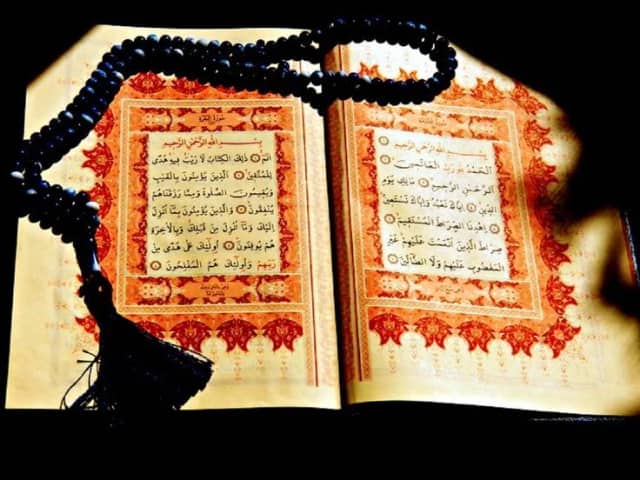 بِسْمِ اللّٰهِ الرَّحْمٰنِ الرَّحِيمِ
اَلْحَمْدُ لِلّٰهِ رَبِّ الْعَالَمِينَ ۝
اَلرَّحْمٰنِ الرَّحِيمِ ۝ مَالِكِ يَوْمِ
الدِّينِ ۝ اِيَّاكَ نَعْبُدُ وَاِيَّاكَ نَسْتَعِينُ
۝ اِهْدِنَا الصِّرَاطَ الْمُسْتَقِيمَ ۝
صِرَاطَ الَّذِينَ اَنْعَمْتَ عَلَيْهِمْ غَيْرِ
الْمَغْضُوبِ عَلَيْهِمْ وَلَا الضَّالِّينَ ۝
سُورَةُ الْبَقَرَةِ
بِسْمِ اللّٰهِ الرَّحْمٰنِ الرَّحِيمِ
الٓمٓ ۝ ذٰلِكَ الْكِتَابُ لَا رَيْبَ فِيهِ هُدًى
لِلْمُتَّقِينَ ۝ اَلَّذِينَ يُؤْمِنُونَ بِالْغَيْبِ
وَيُقِيمُونَ الصَّلٰوةَ وَمِمَّا رَزَقْنَاهُمْ
يُنْفِقُونَ ۝ وَالَّذِينَ يُؤْمِنُونَ بِمَٓا اُنْزِلَ
اِلَيْكَ وَمَٓا اُنْزِلَ مِنْ قَبْلِكَ وَبِالْاٰخِرَةِ
هُمْ يُوقِنُونَ ۝ اُولٰٓئِكَ عَلٰى هُدًى مِنْ
رَبِّهِمْ وَاُولٰٓئِكَ هُمُ الْمُفْلِحُونَ ۝